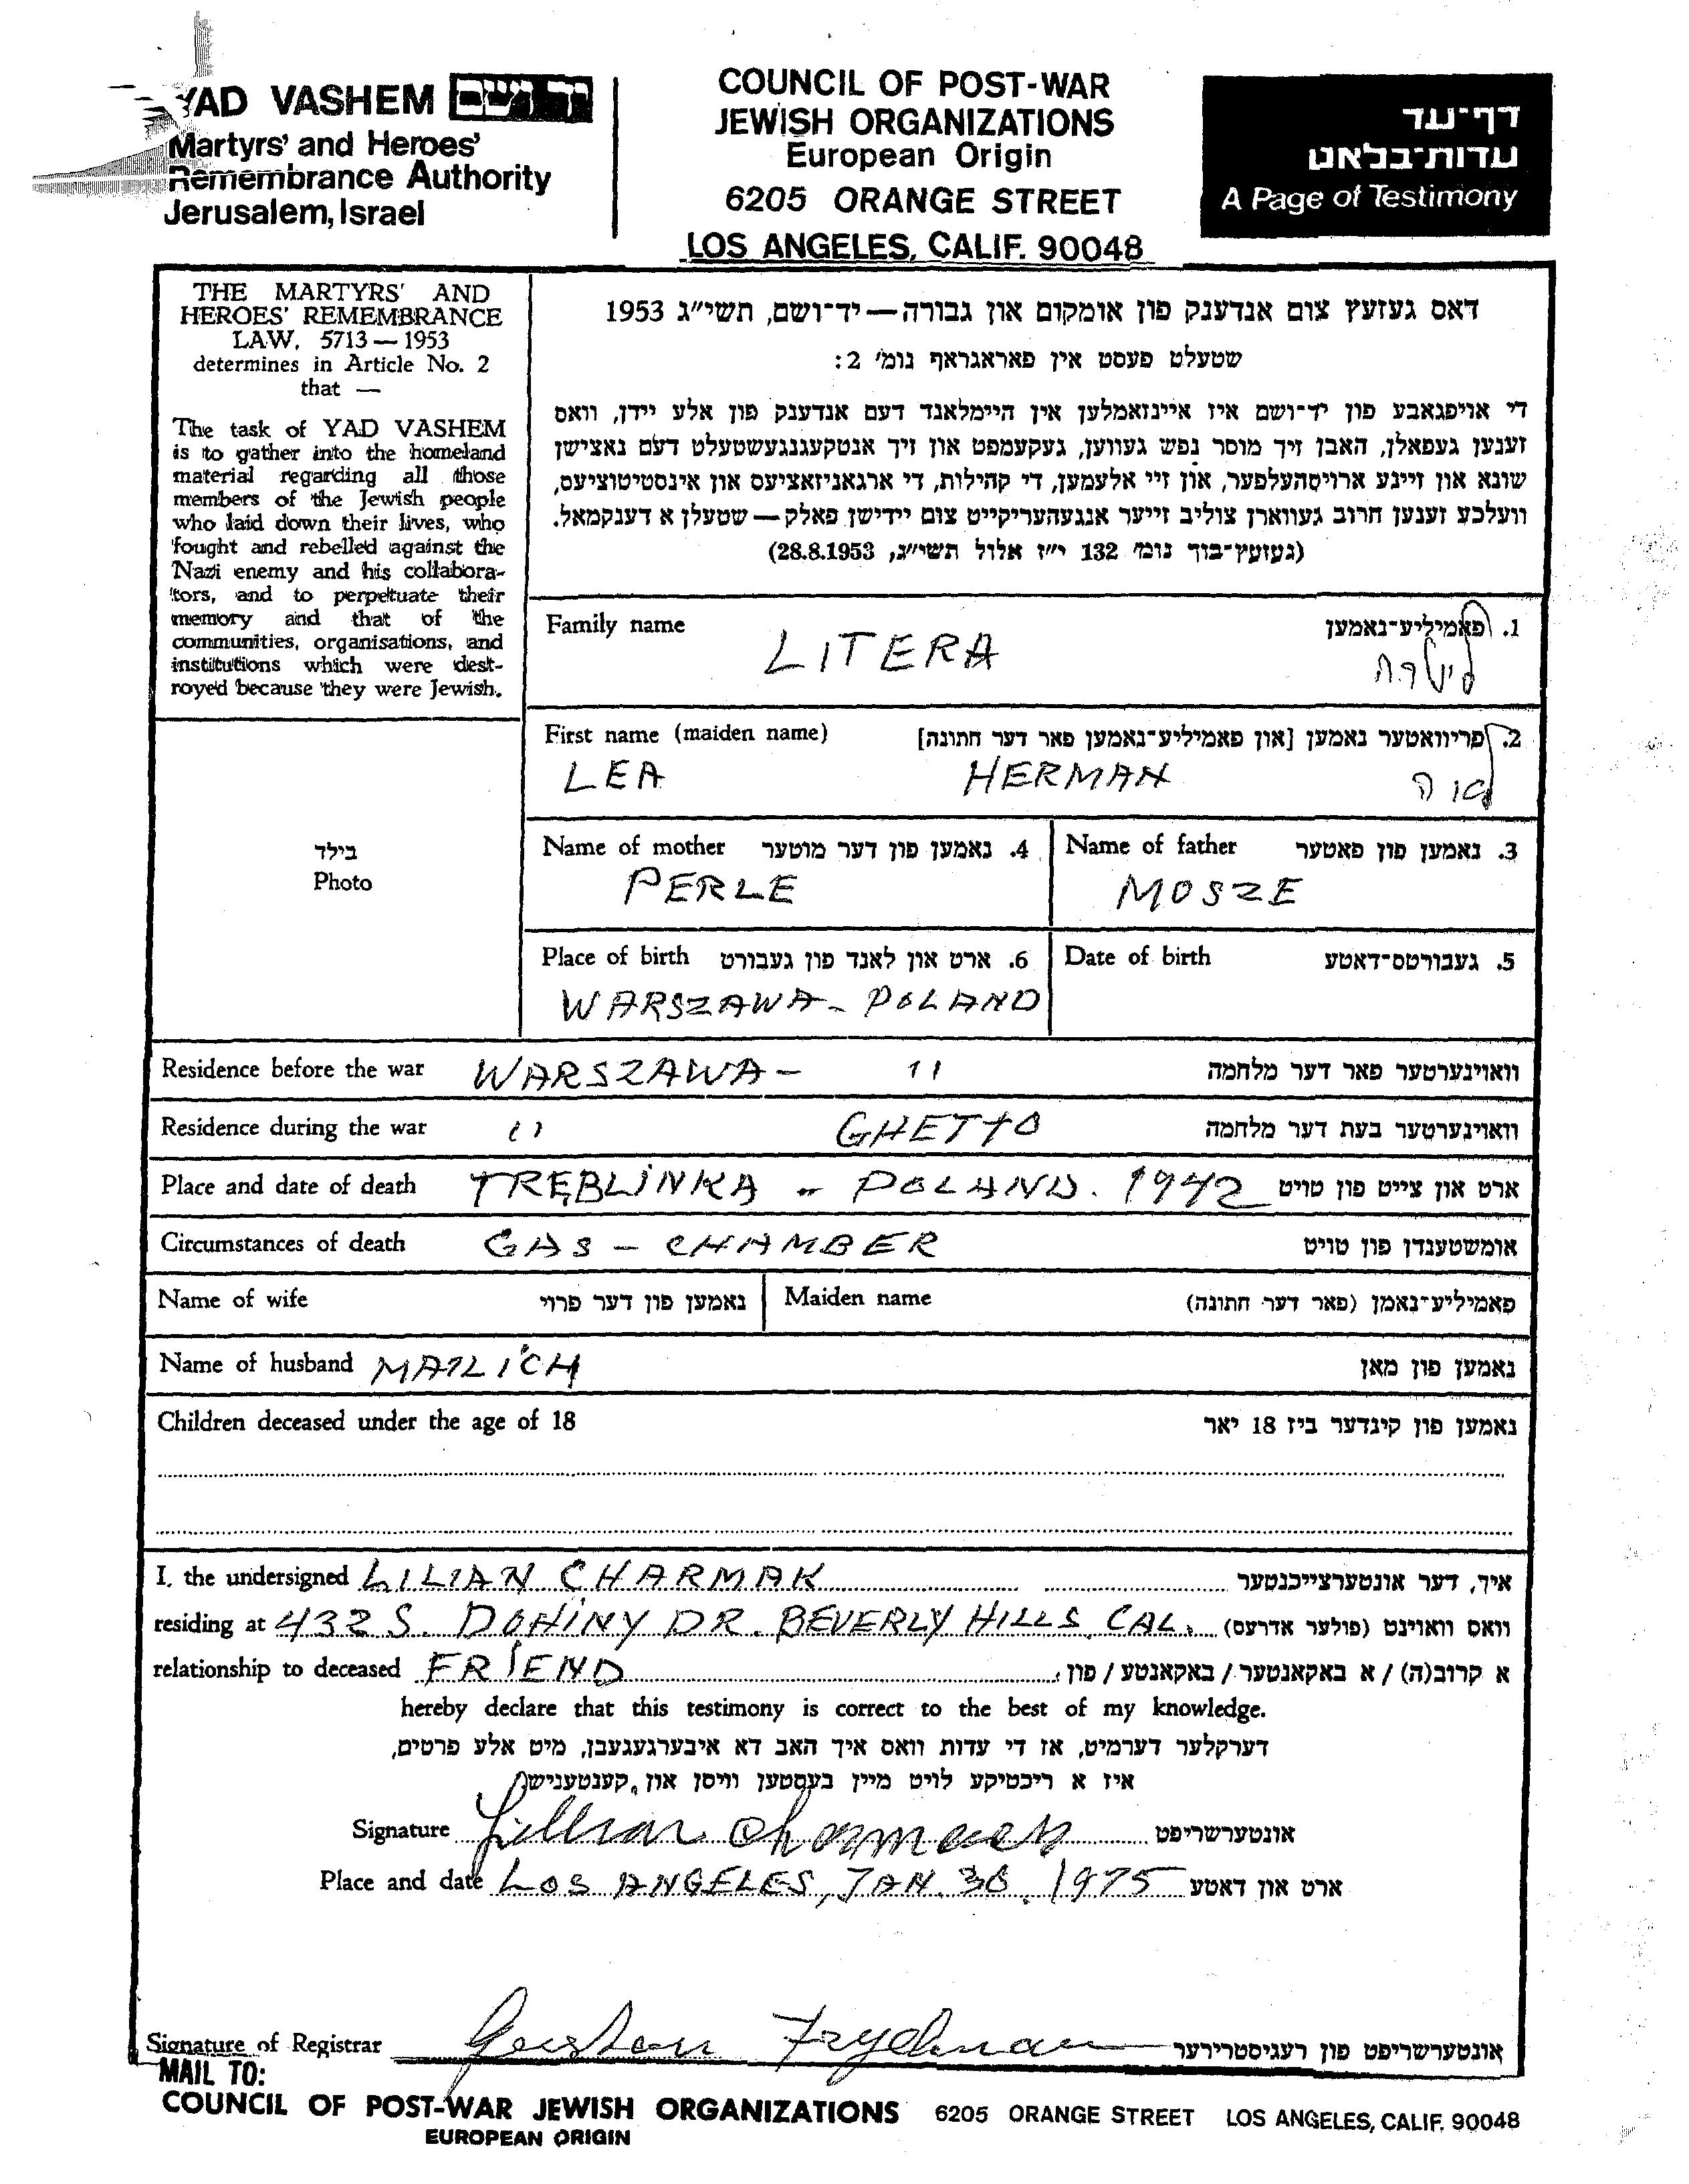 YAD VASHEM יד ושם
Martyrs' and Heroes'
Remembrance Authority
Jerusalem, Israel
COUNCIL OF POST-WAR
JEWISH ORGANIZATIONS
European Origin
6205 ORANGE STREET
LOS ANGELES, CALIF. 90048
דף־עד
עדות־בלאט
A Page of Testimony
THE MARTYRS' AND
HEROES' REMEMBRANCE
LAW, 5713 — 1953
determines in Article No. 2
that —
The task of YAD VASHEM
is to gather into the homeland
material regarding all those
members of the Jewish people
who laid down their lives, who
fought and rebelled against the
Nazi enemy and his collabora-
tors, and to perpetuate their
memory and that of the
communities, organisations, and
institutions which were dest-
royed because they were Jewish.
דאס געזעץ צום אנדענק פון אומקום און גבורה — יד־ושם, תשי״ג 1953
שטעלט פעסט אין פאראגראף נומ׳ 2:
די אויפגאבע פון יד־ושם איז איינזאמלען אין היימלאנד דעם אנדענק פון אלע יידן, וואס
זענען געפאלן, האבן זיך מוסר נפש געווען, געקעמפט און זיך אנטקעגנגעשטעלט דעם נאצישן
שונא און זיינע ארויסהעלפער, און זיי אלעמען, די קהילות, די ארגאניזאציעס און אינסטיטוציעס,
וועלכע זענען חרוב געווארן צוליב זייער אנגעהעריקייט צום יידישן פאלק — שטעלן א דענקמאל.
(געזעץ־בוך נומ׳ 132 י״ז אלול תשי״ג, 28.8.1953)
בילד
Photo
Family name 1. פאמיליע־נאמען
LITERA ליטרה
First name (maiden name) 2. פריוואטער נאמען [און פאמיליע־נאמען פאר דער חתונה]
LEA HERMAN לאה
Name of mother 4. נאמען פון דער מוטער Name of father 3. נאמען פון פאטער
PERLE MOSZE
Place of birth 6. ארט און לאנד פון געבורט Date of birth 5. געבורטס־דאטע
WARSZAWA - POLAND
Residence before the war WARSZAWA - 11 וואוינערטער פאר דער מלחמה
Residence during the war 11 GHETTO וואוינערטער בעת דער מלחמה
Place and date of death TREBLINKA - POLAND. 1942 ארט און צייט פון טויט
Circumstances of death GAS - CHAMBER אומשטענדן פון טויט
Name of wife נאמען פון דער פרוי Maiden name פאמיליע־נאמן (פאר דער חתונה)
Name of husband MAJLICH נאמען פון מאן
Children deceased under the age of 18 נאמען פון קינדער ביז 18 יאר
I, the undersigned LILIAN CHARMAK איך, דער אונטערצייכנטער
residing at 432 S. DOHINY DR. BEVERLY HILLS, CAL. וואס וואוינט (פולער אדרעס)
relationship to deceased FRIEND א קרוב(ה) / א באקאנטער / באקאנטע / פון:
hereby declare that this testimony is correct to the best of my knowledge.
דערקלער דערמיט, אז די עדות וואס איך האב דא איבערגעגעבן, מיט אלע פרטים,
איז א ריכטיקע לויט מיין בעסטען וויסן און קענטעניש.
Signature Lillian Charmack אונטערשריפט
Place and date LOS ANGELES, JAN. 30, 1975 ארט און דאטע
Signature of Registrar Gerston Frydman אונטערשריפט פון רעגיסטרירער
MAIL TO:
COUNCIL OF POST-WAR JEWISH ORGANIZATIONS 6205 ORANGE STREET LOS ANGELES, CALIF. 90048
EUROPEAN ORIGIN